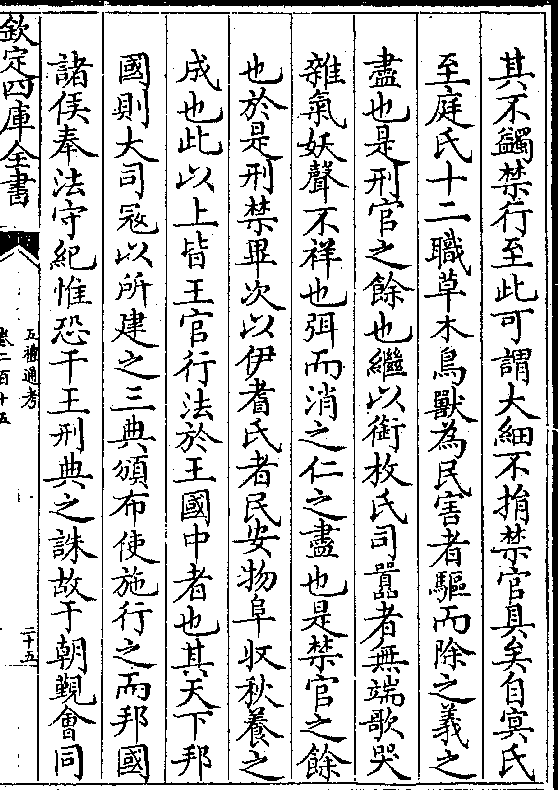 其不蠲禁行至此可謂大細不捐禁官具矣自冥氏
至庭氏十二職草木鳥獸為民害者驅而除之義之
盡也是刑官之餘也繼以銜枚氏司嚻者無端歌哭
雜氣妖聲不祥也弭而消之仁之盡也是禁官之餘
也於是刑禁畢次以伊耆氏者民安物阜収秋養之
成也此以上皆王官行法於王國中者也其天下邦
國則大司寇以所建之三典頒布使施行之而邦國
諸侯奉法守紀惟恐干王刑典之誅故于朝覲會同
欽定四庫全書
五禮通考
卷二百十五
二十五